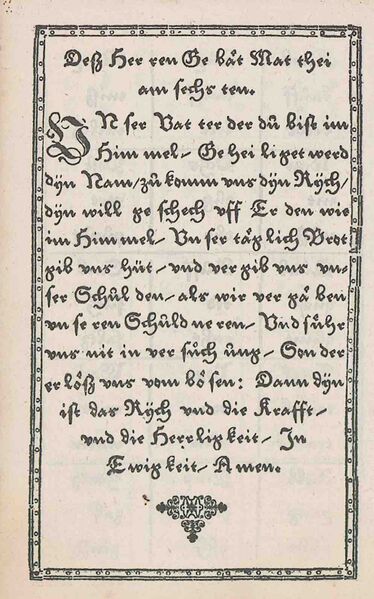 Deß Her ren Ge bät Mat thei
am sechs ten.
VN ser Vat ter der dů bist im
Him mel⸗ Ge hei li get werd
dyn Nam/ zů komm vns dyn Rych/
dyn will ge schech vff Er den wie
im Him mel⸗ Vn ser täg lich Brot
gib vns hüt⸗ vnd ver gib vns vn⸗
ser Schul den⸗ als wir ver gä ben
vn se ren Schuld ne ren⸗ Vnd führ
vns nit in ver such ung⸗ Son der
er löß vns vom bö sen: Dann dyn
ist das Rych vnd die Krafft⸗
vnd die Herr lig keit⸗ In
E wig keit⸗ A men.